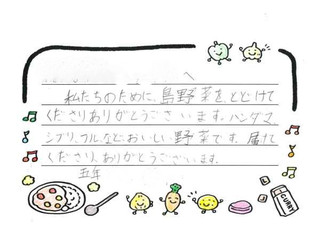 へ
私たちのために、島野菜を、とどけて
くださりありがとうございます。ハンダマ、
シブリ、フル、など、おいしい野菜です。届けて
くださり、ありがとうございます。
五年
CURRY